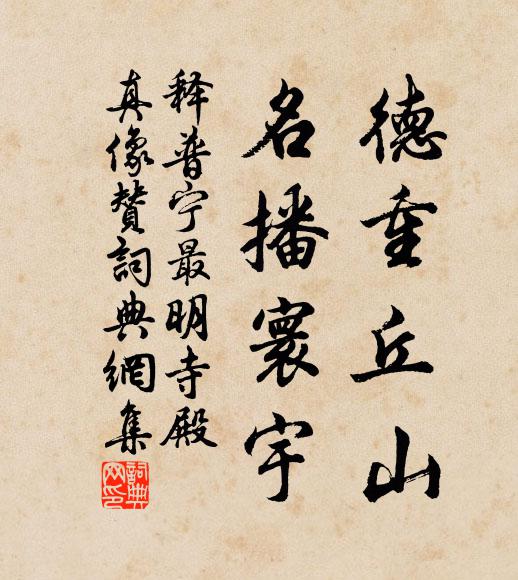 德重丘山
名播寰宇
释普宁最明寺殿
真像赞詞典網集
詞典网印